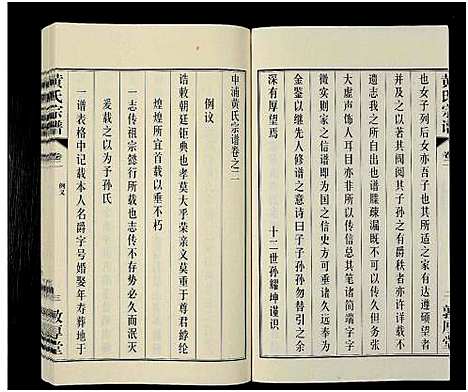 黄氏宗谱
卷二
敦厚堂
也女子列后女亦吾子也其所适之家或声望硕望者
并及之以其有闺阃子孙之有爵秩者亦许详载不
遗志我之咎也由也谱牒疎漏既不可以传久但务于
大虚声饰以夸示人则非核实纪真之义又不可以传
微实则简而该久而著为一家之信史方可传之于无穷
金鉴以继先人修谱之意诗曰子子孙孙勿替引之余
深有厚望焉
十二世孙耀坤谨识
申浦黄氏宗谱卷之二
例议
诰敕朝廷钜典也孝莫大乎荣亲文莫重于尊君纶綍
煌煌所宜首载以垂不朽
一志传祖宗懿行所载也志传不存势必久而泯灭
爰载之以为子孙氏
一谱表格中记载本人名爵字号婚娶年寿葬地于
黄氏宗谱
卷二
例义
三
敦厚堂